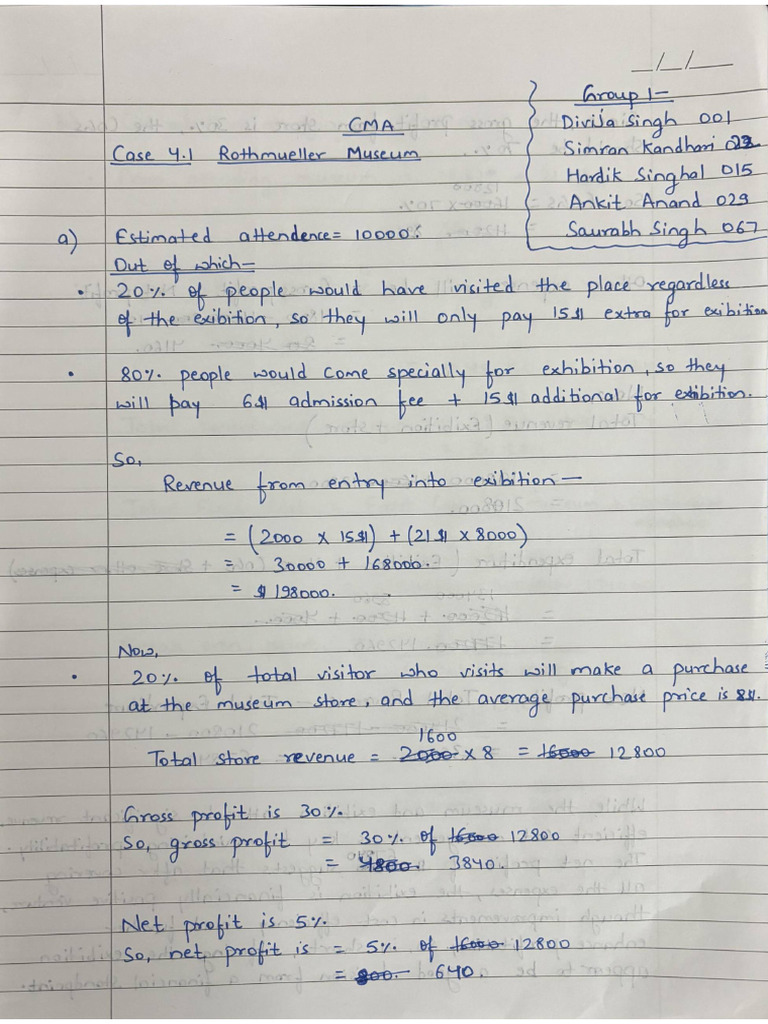 _/_/__
Group 1-
Divija Singh 001
CMA
Simran Kandhari 023
Case 4.1 Rothmueller Museum
Hardik Singhal 015
Ankit Anand 029
Saurabh Singh 067
a) Estimated attendence = 10000
Out of which-
• 20% of people would have visited the place regardless
of the exibition, so they will only pay 15$ extra for exibition
• 80% people would come specially for exhibition, so they
will pay 6$ admission fee + 15$ additional for exibition.
So,
Revenue from entry into exibition —
= (2000 x 15$) + (21$ x 8000)
= 30000 + 168000.
= $ 198000.
Now,
• 20% of total visitor who visits will make a purchase
at the museum store, and the average purchase price is 8$.
1600
Total store revenue = 2000 x 8 = 16000 12800
Gross profit is 30%.
So, gross profit = 30% of 16000 12800
= 4800. 3840.
Net profit is 5%.
So, net profit is = 5% of 16000 12800
= 800. 640.